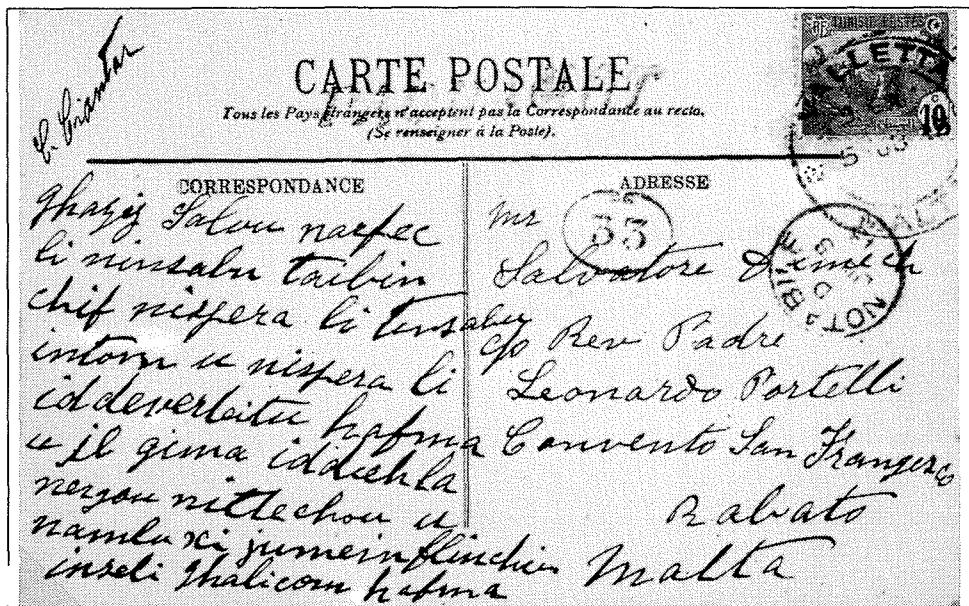 C. Ciantar
CARTE POSTALE
Tous les Pays étrangers n'acceptent pas la Correspondance au recto.
(Se renseigner à la Poste).
TUNISIE POSTES
10
VALLETTA
CORRESPONDANCE
Ghaziz Salvu
li ninsabu taibin
chif nispera li tinsabu
intom u nispera li
iddeverteitu hafma
u jl gima iddiehla
nergou nittechou u
namlu xi jumein flinchu
inseli ghalicom hafma
ADRESSE
33
Mr
Salvatore Dimech
c/o Rev Padre
Leonardo Portelli
Convento San Frangesco
Rabato
Malta
NOTABILE